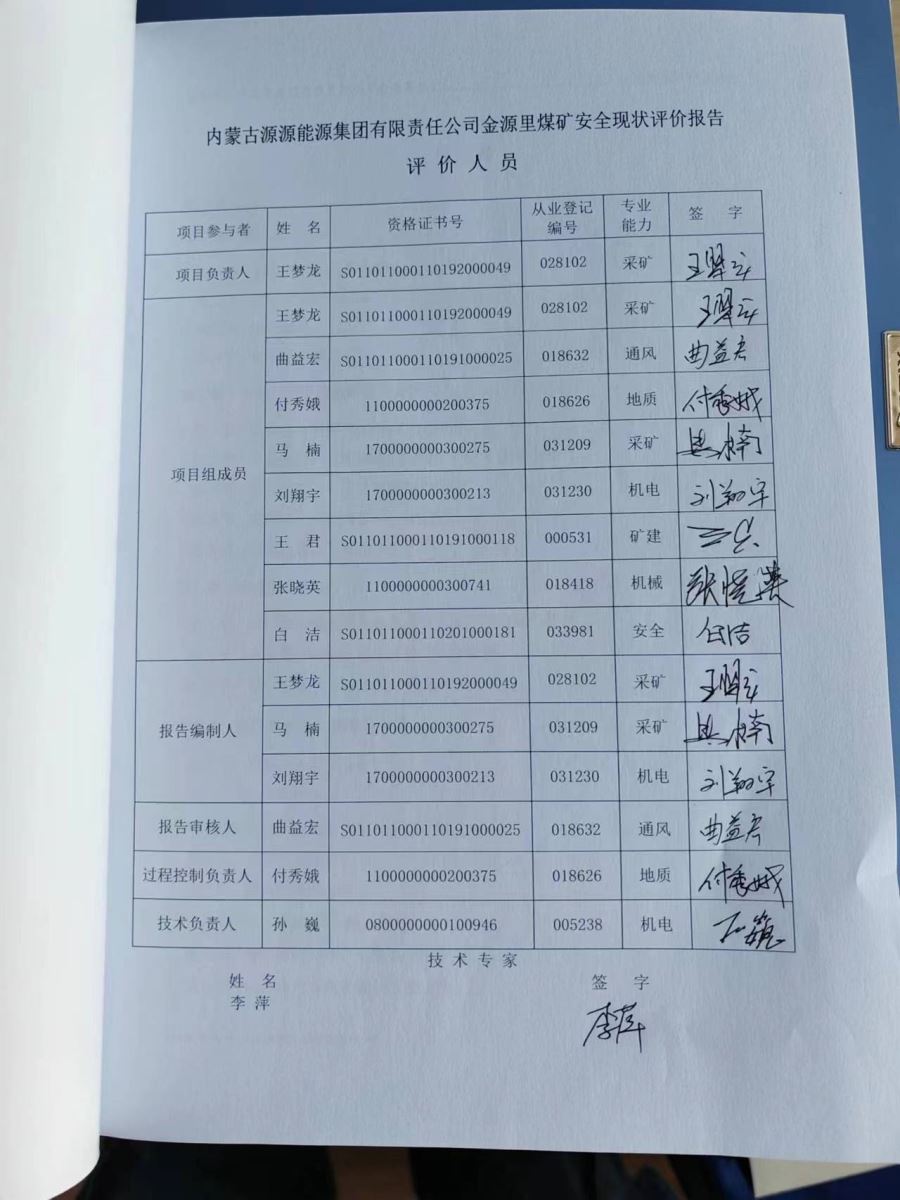 内蒙古源源能源集团有限责任公司金源里煤矿安全现状评价报告
评价人员
项目参与者 姓名 资格证书号 从业登记编号 专业能力 签字
项目负责人 王梦龙 S011011000110192000049 028102 采矿
项目组成员 王梦龙 S011011000110192000049 028102 采矿
曲益宏 S011011000110191000025 018632 通风 曲益宏
付秀娥 1100000000200375 018626 地质 付秀娥
马楠 1700000000300275 031209 采矿 马楠
刘翔宇 1700000000300213 031230 机电 刘翔宇
王君 S011011000110191000118 000531 矿建
张晓英 1100000000300741 018418 机械 张晓英
白洁 S011011000110201000181 033981 安全 白洁
报告编制人 王梦龙 S011011000110192000049 028102 采矿
马楠 1700000000300275 031209 采矿 马楠
刘翔宇 1700000000300213 031230 机电 刘翔宇
报告审核人 曲益宏 S011011000110191000025 018632 通风 曲益宏
过程控制负责人 付秀娥 1100000000200375 018626 地质 付秀娥
技术负责人 孙巍 0800000000100946 005238 机电
技术专家
姓名 签字
李萍 李萍